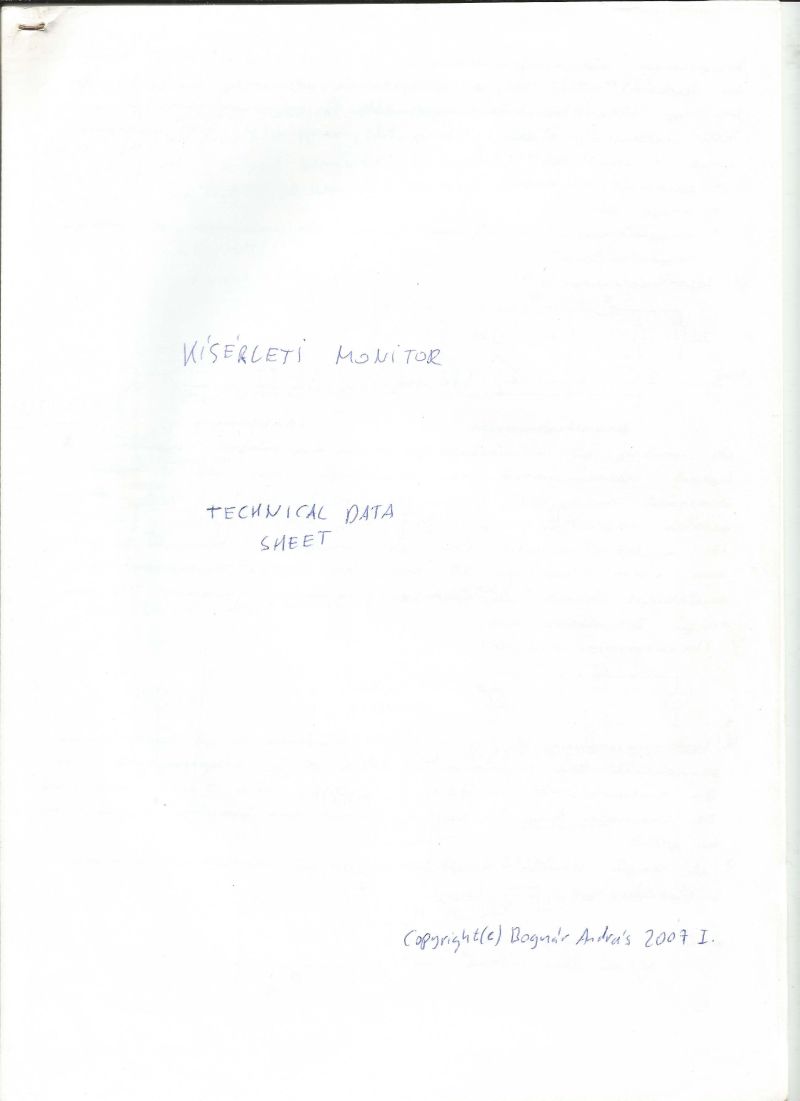 KÍSÉRLETI MONITOR
TECHNICAL DATA
SHEET
Copyright(c) Bognár András 2007 I.